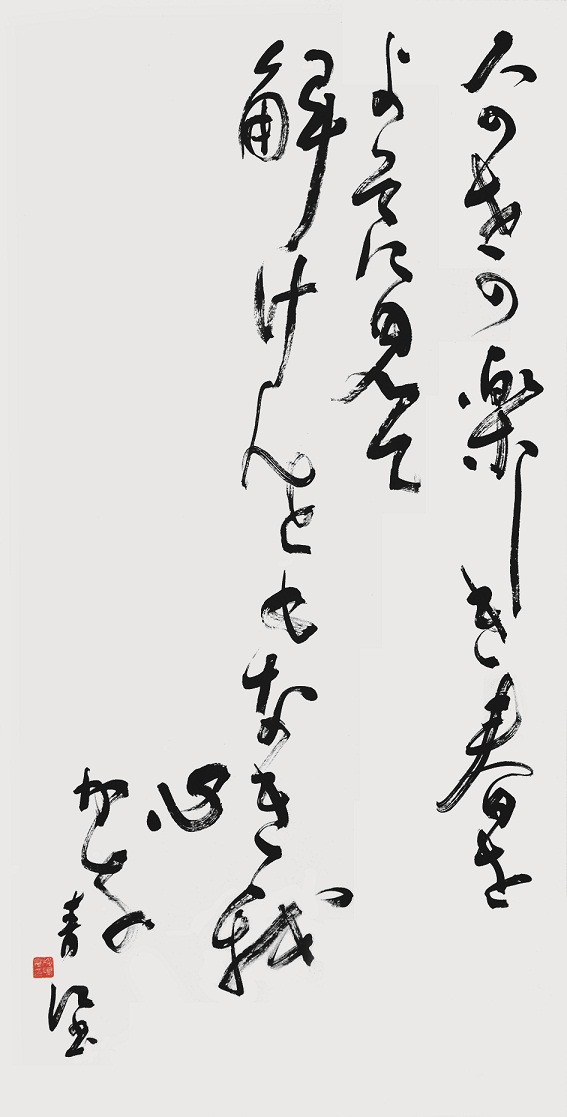 人の世の楽しき春を
よそに見て
解けんともなき我
心
かな
青